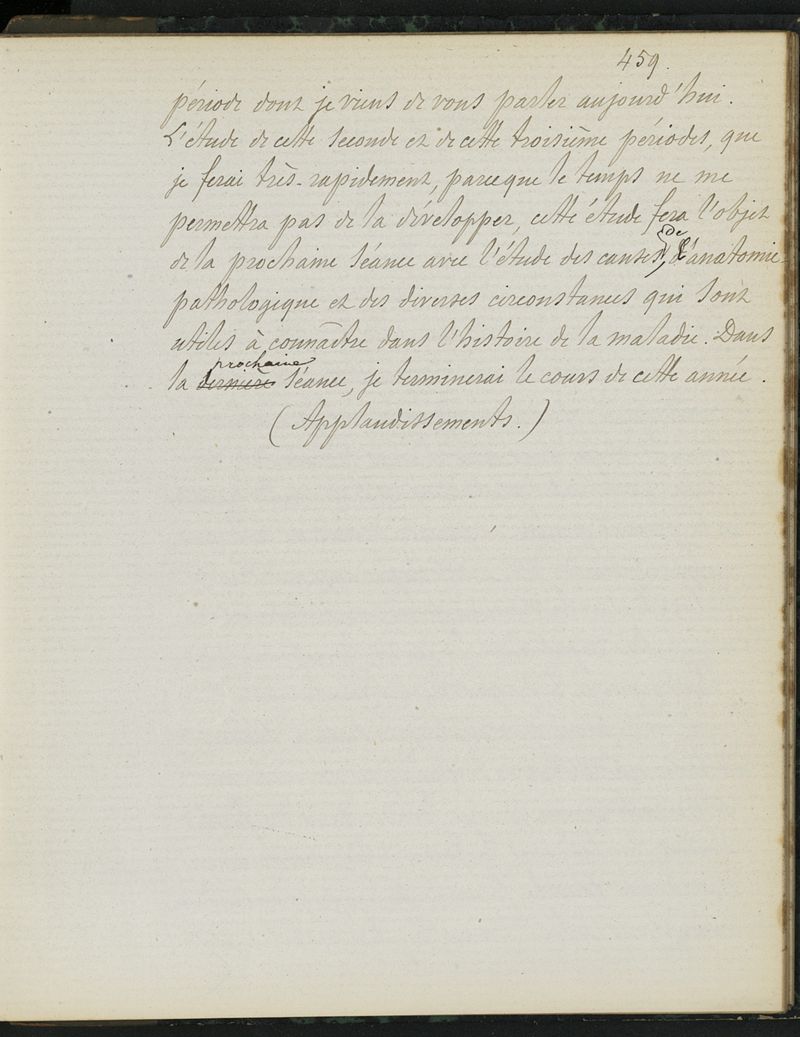 459.
période dont je viens de vous parler aujourd'hui.
L'étude de cette seconde et de cette troisième périodes, que
je ferai très-rapidement, parceque le temps ne me
permettra pas de la développer, cette étude fera l'objet
de la prochaine séance avec l'étude des causes, de l'anatomie
pathologique et des diverses circonstances qui sont
utiles à connaître dans l'histoire de la maladie. Dans
la dernière prochaine séance, je terminerai le cours de cette année.
(Applaudissements.)